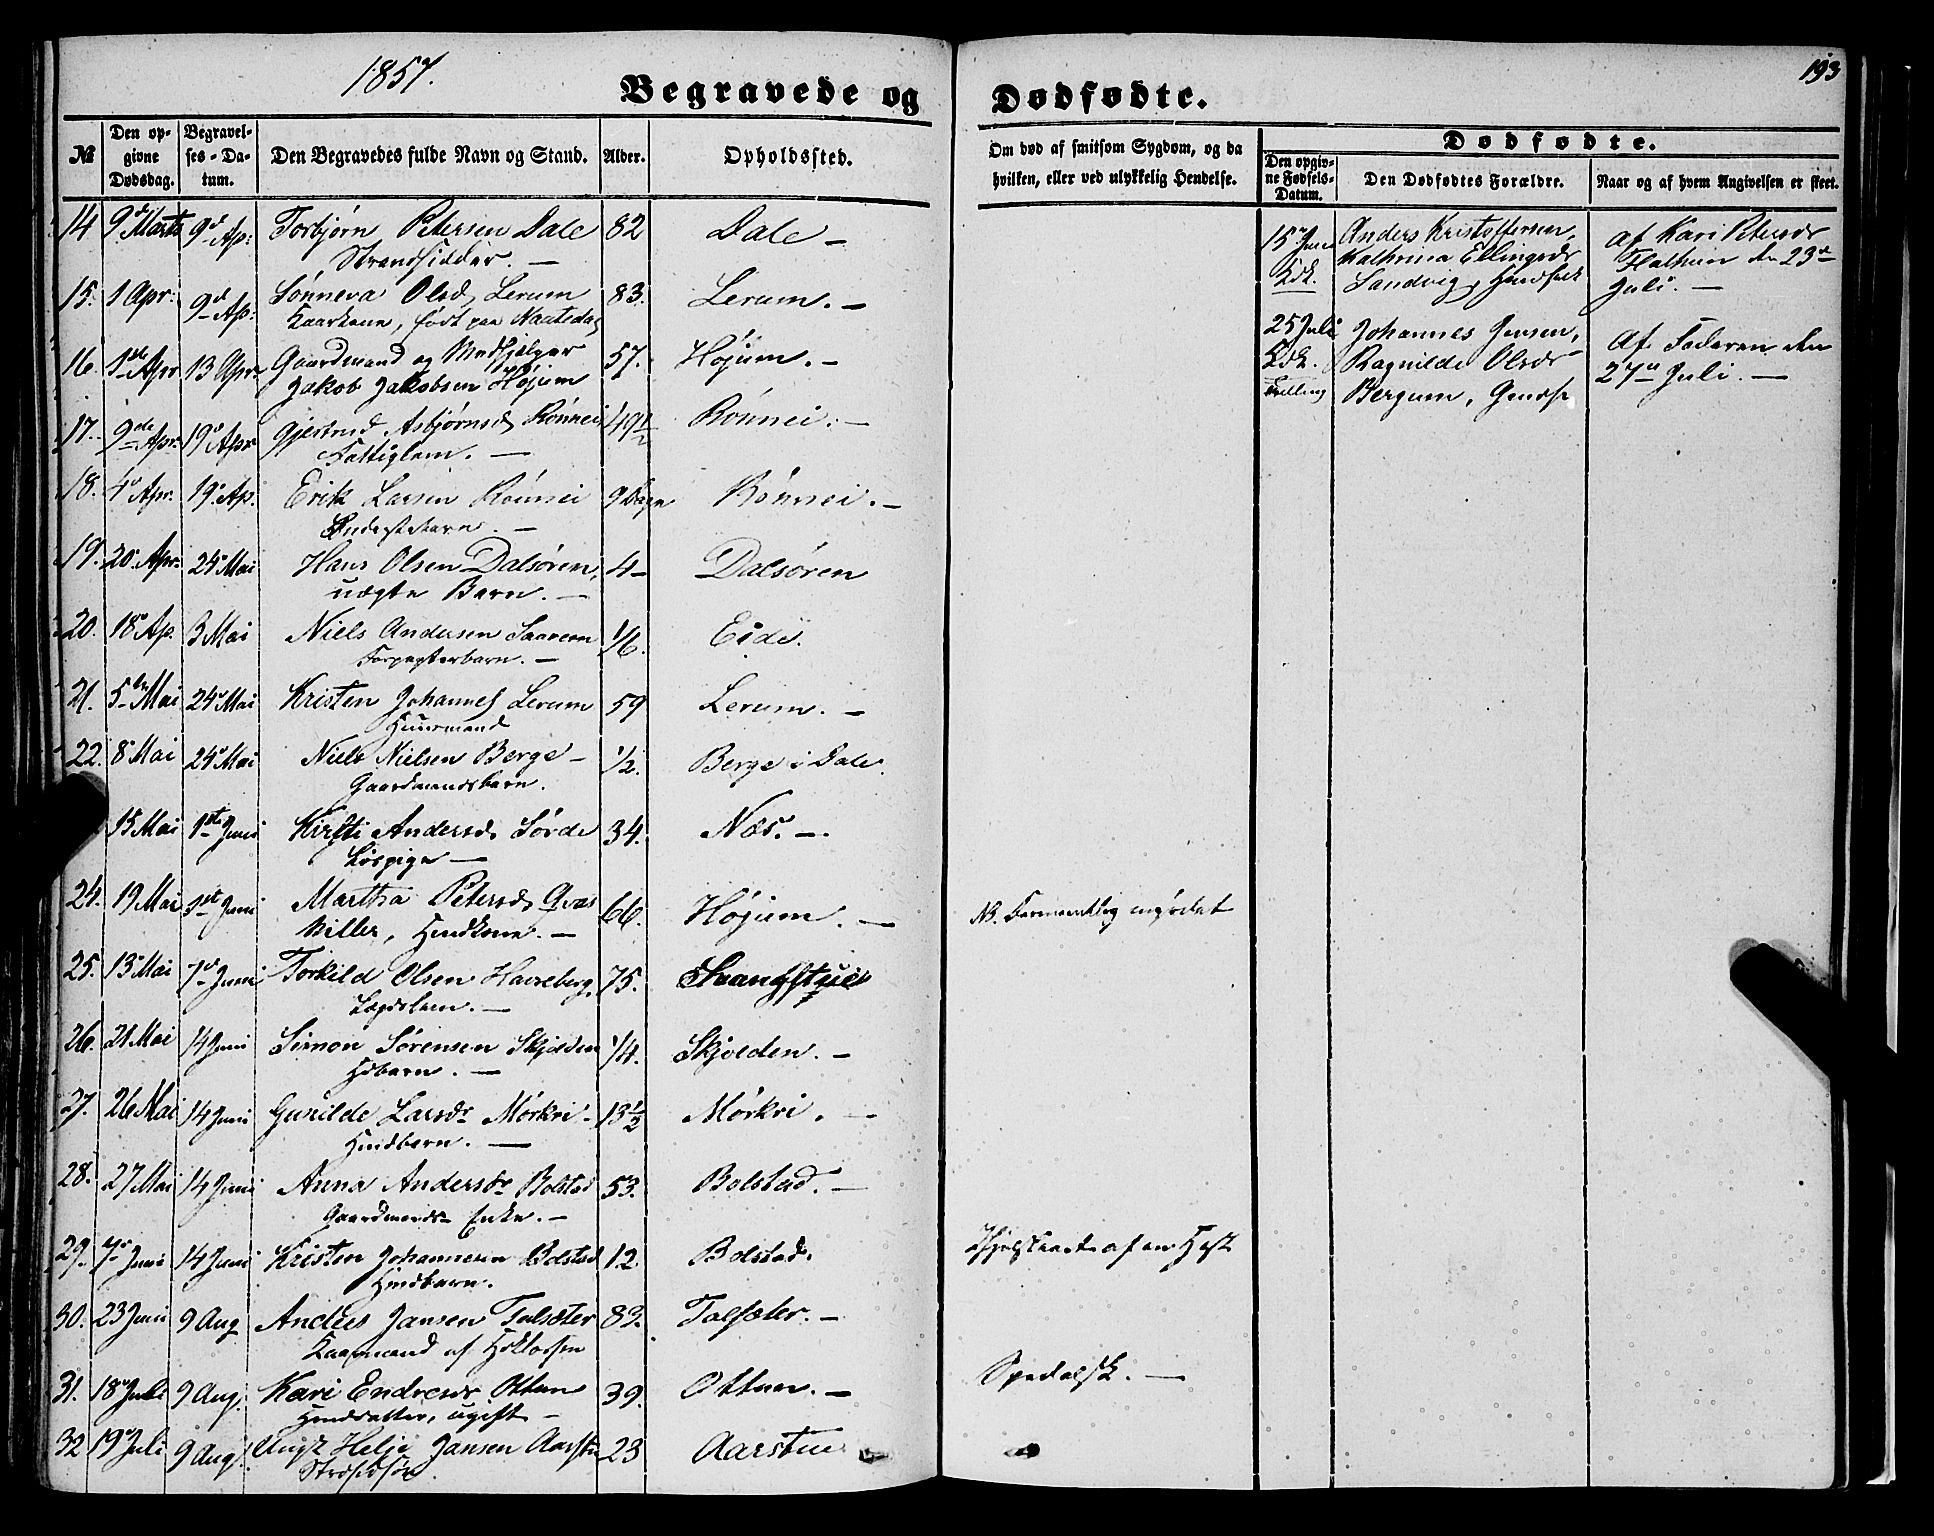 1857.
193
Begravede og Dødfødte.
№
Den opgivne Dødsdag.
Begravelses-Datum.
Den Begravedes fulde Navn og Stand.
Alder.
Opholdssted.
Om død af smitsom Sygdom, og da hvilken, eller ved ulykkelig Hendelse.
Dødfødte.
Den opgivne Fødsels-Datum.
Den Dødfødtes Forældre.
Naar og af hvem Angivelsen er skeet.
14 9d Marts 9d Ap: Torbjørn Petersen Dale 82 Dale –
Strandsidder. –
15. 1 Apr: 9d Ap: Sønneva Olsd. Lerum 83. Lerum. –
Kaarkone, født paa
16. 1ste Apr 13 Apr: Gaardmand og Medhjelper 57. Højum. –
Jakob Jakobsen Højum
17. 9de Apr. 19d Apr Gjertrud Asbjørnsd. Rønnei 49 1/2 Rønnei. –
Fattiglem. –
18. 4d Apr. 19d Ap. Erik Larsen Rønnei 9 Dage Rønnei. –
19. 20 Apr. 24 Mai Hans Olsen Dalsøren, 4 – Dalsøren
uægte Barn. –
20. 18 Ap. 3 Mai Niels Andersen 1/6. Eide.
Forpagterbarn. –
21. 5te Mai 24 Mai Kristen Johannes Lerum 59 Lerum. –
Huusmand
22. 8 Mai 24 Mai Niels Nielsen Berge – 1/2. Berge i Dale.
Gaardmandsbarn.
15 Mai 1ste Juni Kirsti Andersd. Sørde 34. Næs. –
Løspige –
24. 19 Mai 1ste Juni Martha Petersd. 66. Højum. – NB. Formentlig myrdet
25. 13 Mai 7d Juni Torkild Olsen Havreberg. 75.
Lægdslem. –
26. 21 Mai 14 Juni Simon Sørensen Skjolden 1/4. Skjolden. –
Hsbarn. –
27. 26 Mai 14 Juni Gunilde Larsdr Mørkri – 13 1/2 Mørkri. –
Husdbarn. –
28. 27 Mai 14 Juni Anna Andersdr Bolstad 53. Bolstad. –
Gaardmands Enke. –
29. 7d Juni 14 Juni Kristen Johannesen Bolstad 12. Bolstad. Ihjelslaaet af en Hest
Husdbarn.
30. 23 Juni 9 Aug Anders Jansen Talsæter 83. Talsæter. –
Kaarmand af
31. 18 Juli 9 Aug. Kari Endresdr Ottum 39. Ottum. – Spedalsk. –
ugift –
32 19 Juli 9 Aug. Ungk. Helje Jansen 23
15 Juni Anders Kristoffersen, af Kari Petersdr
Kathrina Ellingsdr Flathun den 23de
Sandvig, Juli. –
25 Juli Johannes Jensen, Af Faderen den
Ragnilde Olsdr 27de Juli. –
Tvilling Bergum,